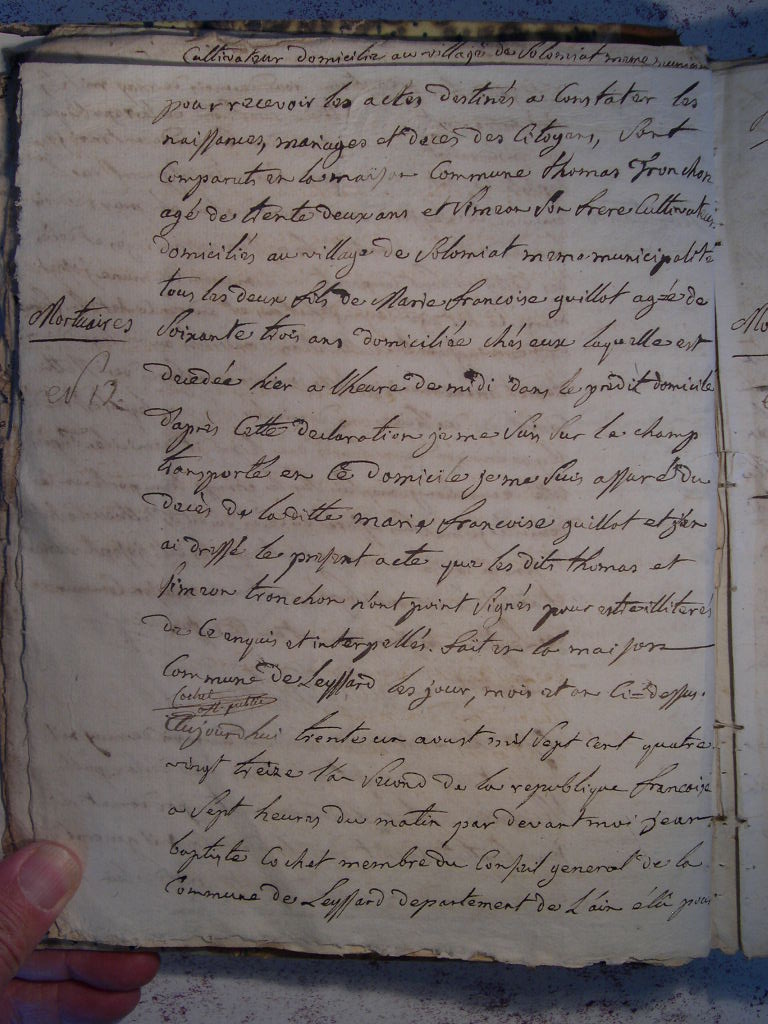 Cultivateur domicilié au village de Solomiat meme
pour recevoir les actes destinés a Constater les
naissances, mariages et decès des Citoyens, Sont
Comparuts en la maison Commune thomas Tronchon
agé de trente deux ans et Simeon Son frere Cultivateurs
domiciliés au village de Solomiat meme municipalité
tous les deux fils de Marie francoise guillot agée de
Mortuaires
Soixante trois ans domiciliée chés eux laquelle est
decedée hier a lheure de midi dans le prédit domicile
12
d'après Cette declaration je me Suis Sur le champ
transporté en Ce domicile je me Suis assuré du
decès de laditte marie francoise guillot et j'en
ai dressé le present acte que les dits thomas et
Simeon tronchon n'ont point Signés pour etre illiterés
de Ce enquis et interpellés. fait en la maison
Commune de Leyssard les jour, mois et an Ci=dessus.
Cochet
off. public
Aujourdhui trente un aoust mil Sept Cent quatre
vingt treize l'an Second de la republique francoise
a Sept heures du matin par devant moi jean
baptiste Cochet membre du Conseil general de la
Commune de Leyssard departement de L'ain élû pour